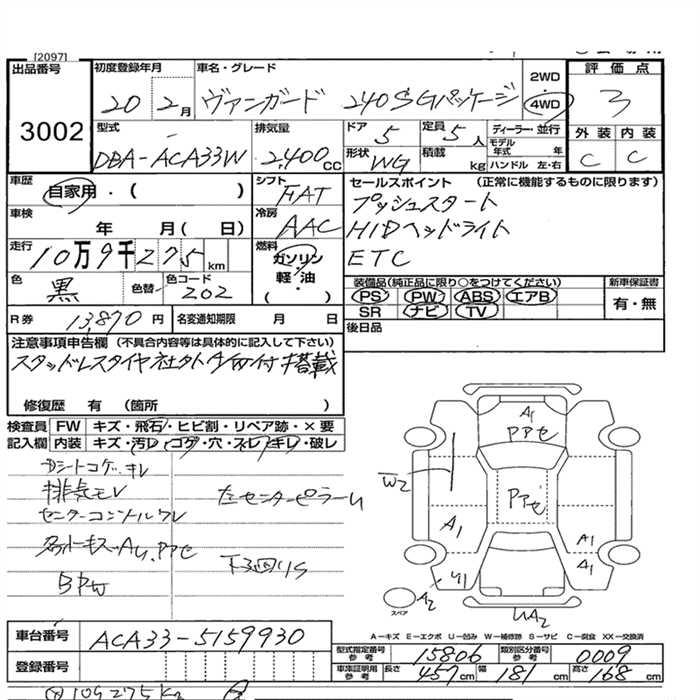 [2097]
出品番号 3002
初度登録年月 20 2月
車名・グレード ヴァンガード 240S Gパッケージ
2WD 4WD
評価点 3
外装 内装
C C
型式 DBA-ACA33W
排気量 2,400 CC
ドア 5
定員 5人
ディーラー・並行
モデル年式 年
形状 WG
積載 kg
ハンドル 左・右
車歴 自家用・( )
シフト FAT
セールスポイント (正常に機能するものに限ります)
プッシュスタート
HIDヘッドライト
ETC
車検 年 月( 日)
冷房 AAC
走行 10万9千275 km
燃料 ガソリン 軽・油 ・( )
色 黒 色替 色コード 202
装備品(純正品に限り○をつけてください)
PS PW ABS エアB
SR ナビ TV
新車保証書 有・無
R券 13,870 円
名変通知期限 月 日
後日品
注意事項申告欄 (不具合内容等は具体的に記入して下さい)
スタッドレスタイヤ社外アルミ4本付 搭載
修復歴 有 (箇所 )
検査員記入欄
FW キズ・飛石・ヒビ割・リペア跡・×要
内装 キズ・汚レ・コゲ・穴・スレ・キレ・破レ
シートコゲ.キレ
排気モレ
左センターピラーU
下廻りS
A1
アA1
W2
A1
A1
A1
U1
A2
UA2
スペア
A-キズ E-エクボ U-凹み W-補修跡 S-サビ C-腐食 XX-交換済
車台番号 ACA33-5159930
登録番号
型式指定番号 参考 15806
類別区分番号 参考 0009
車庫証明用 参考 長さ 457 cm 幅 181 cm 高さ 168 cm
109275km